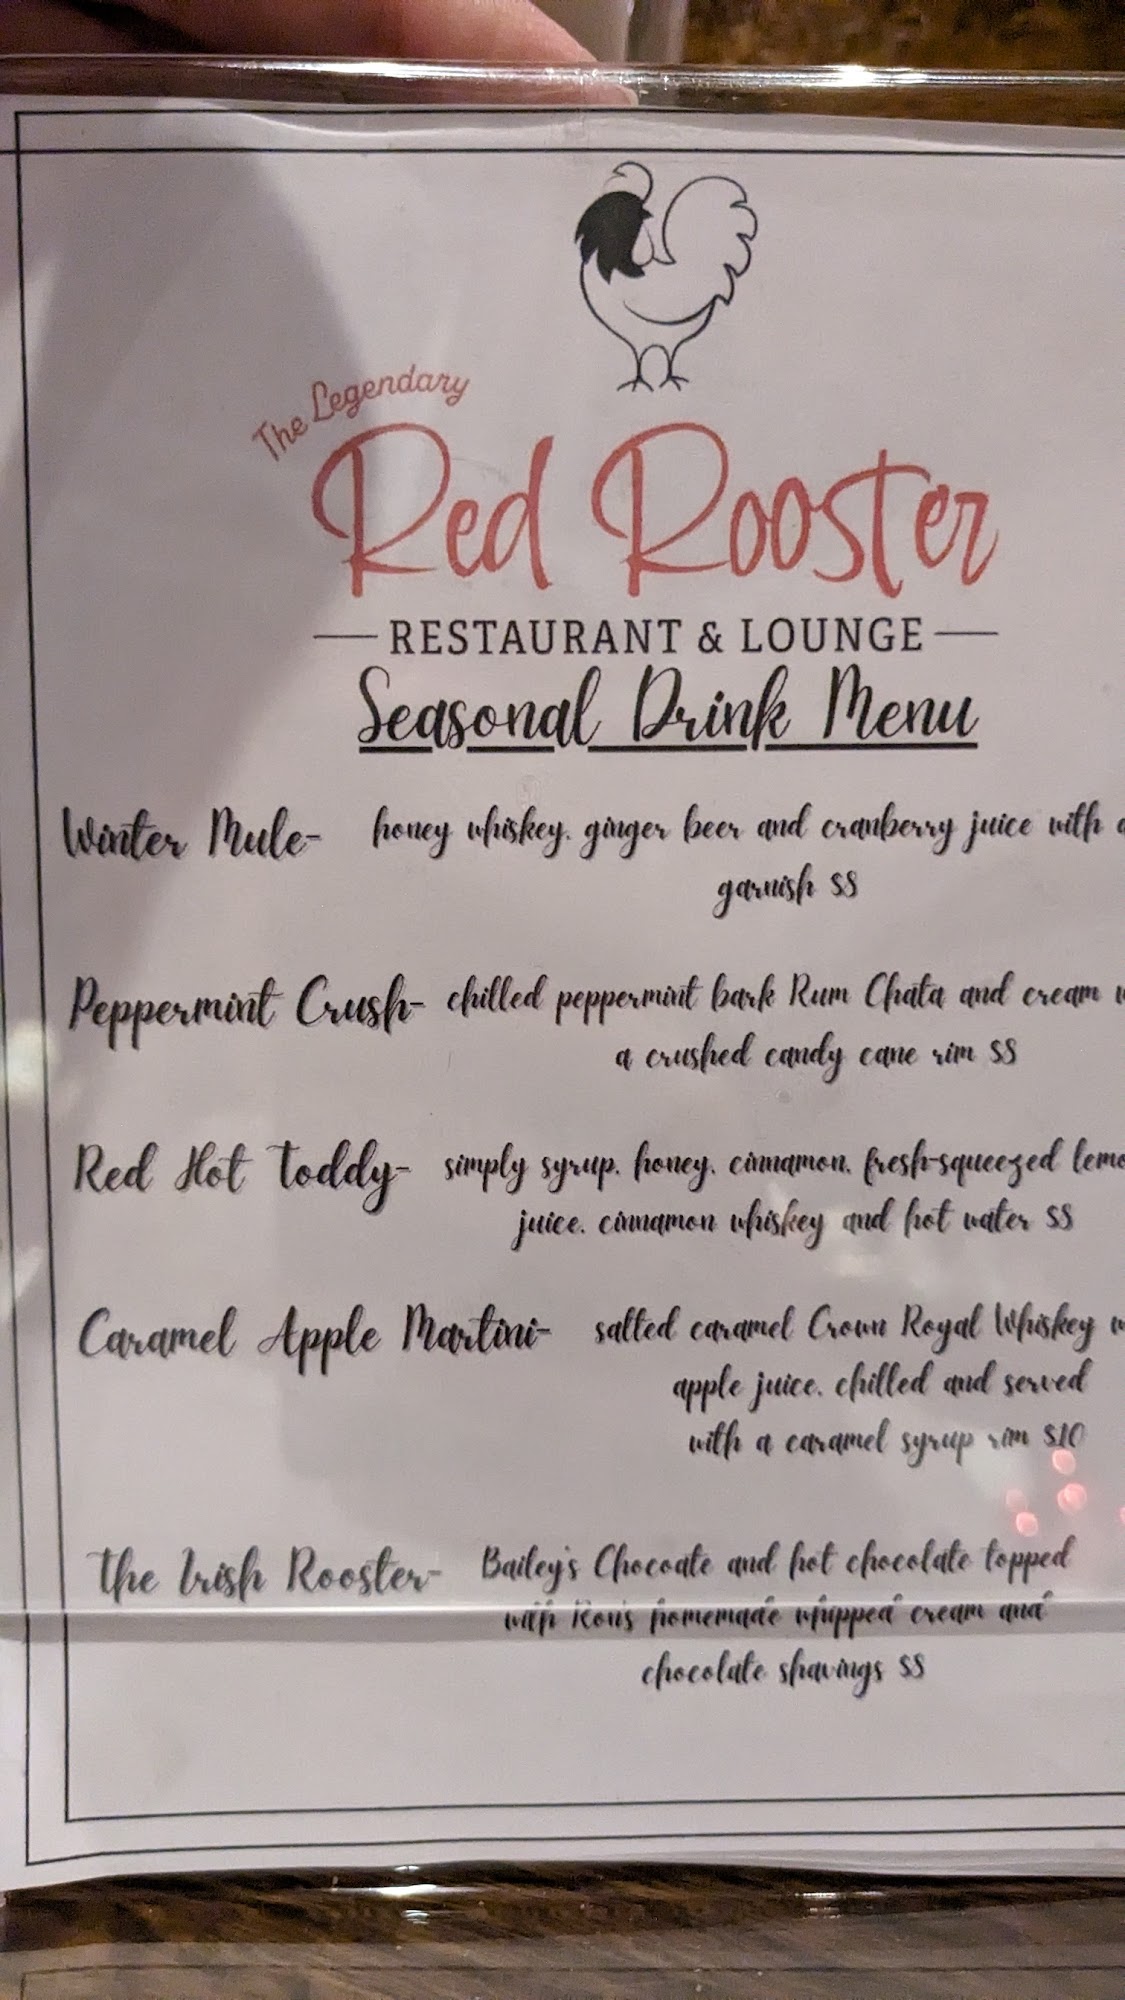 The Legendary
Red Rooster
RESTAURANT & LOUNGE
Seasonal Drink Menu
Winter Mule- honey whiskey, ginger beer and cranberry juice with
garnish $8
Peppermint Crush- chilled peppermint bark Rum Chata and cream
a crushed candy cane rim $8
Red Hot Toddy- simply syrup, honey, cinnamon, fresh-squeezed
juice, cinnamon whiskey and hot water $8
Caramel Apple Martini- salted caramel Crown Royal Whiskey
apple juice, chilled and served
with a caramel syrup rim $10
The Irish Rooster- Bailey's Chocoate and hot chocolate topped
with Ron's homemade whipped cream and
chocolate shavings $8